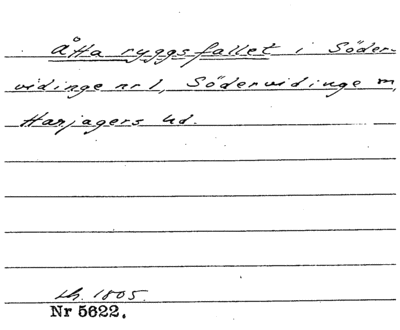 Åtta ryggsfallet i Söder-
vidinge nr 1, Södervidinge m,
Harjagers hd.
Lh. 1805.
Nr 5622.